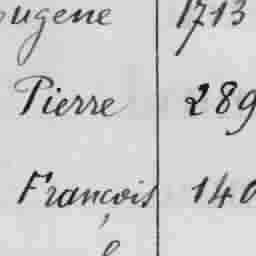 ugene 1713
Pierre 289
François 140